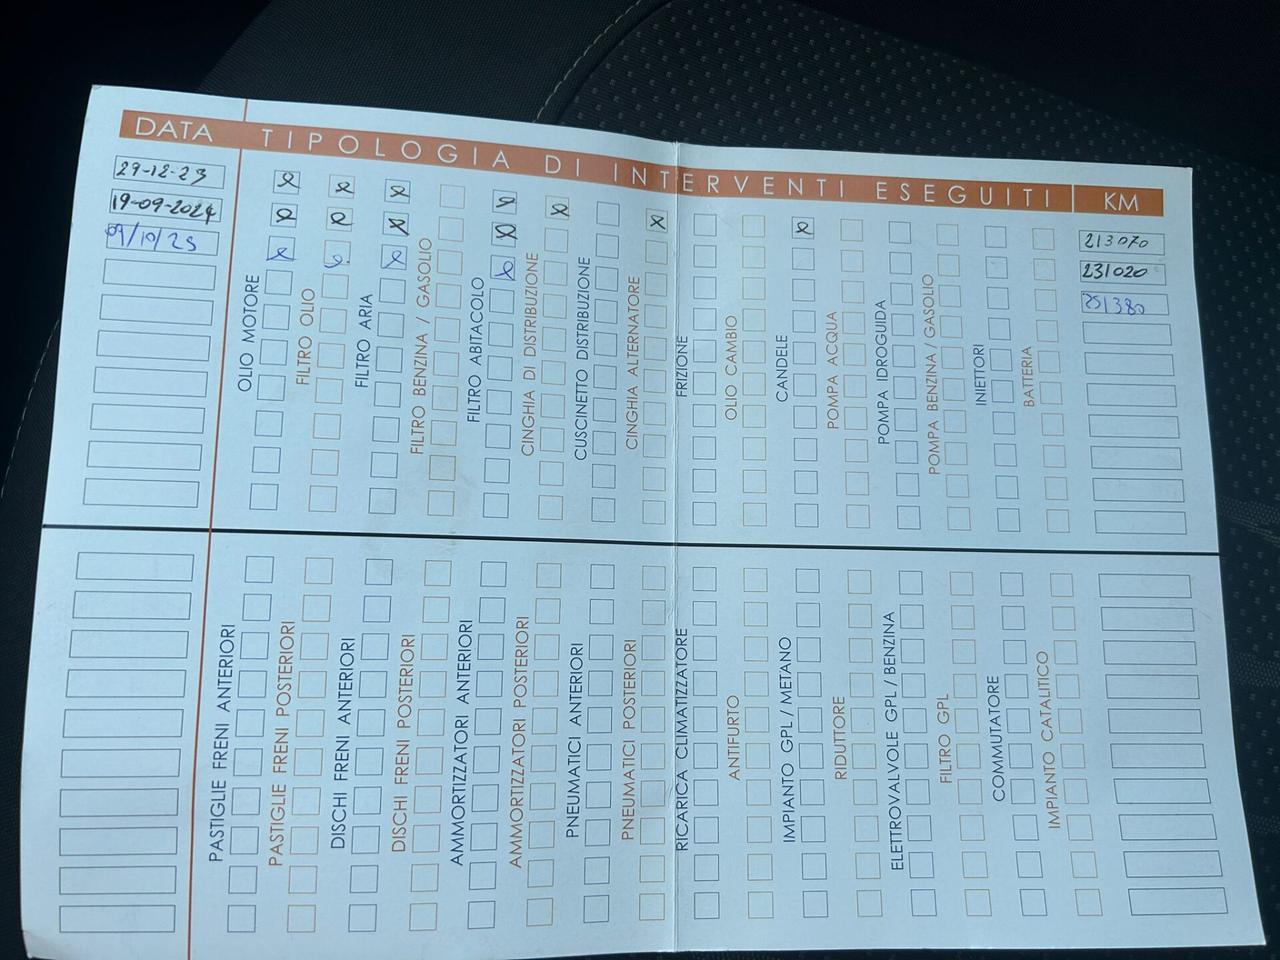 DATA TIPOLOGIA DI INTERVENTI ESEGUITI KM
29-12-23 213070
19-09-2024 231020
09/10/25 251380
OLIO MOTORE
FILTRO OLIO
FILTRO ARIA
FILTRO BENZINA / GASOLIO
FILTRO ABITACOLO
CINGHIA DI DISTRIBUZIONE
CUSCINETTO DISTRIBUZIONE
CINGHIA ALTERNATORE
FRIZIONE
OLIO CAMBIO
CANDELE
POMPA ACQUA
POMPA IDROGUIDA
POMPA BENZINA / GASOLIO
INIETTORI
BATTERIA
PASTIGLIE FRENI ANTERIORI
PASTIGLIE FRENI POSTERIORI
DISCHI FRENI ANTERIORI
DISCHI FRENI POSTERIORI
AMMORTIZZATORI ANTERIORI
AMMORTIZZATORI POSTERIORI
PNEUMATICI ANTERIORI
PNEUMATICI POSTERIORI
RICARICA CLIMATIZZATORE
ANTIFURTO
IMPIANTO GPL / METANO
RIDUTTORE
ELETTROVALVOLE GPL / BENZINA
FILTRO GPL
COMMUTATORE
IMPIANTO CATALITICO